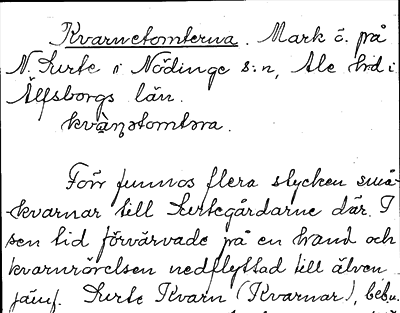 Kvarnetomterna. Mark ö. på
N. Surte i Nödinge s:n, Ale hd i
Älfsborgs län.
kvàṇətomtəra.
Förr funnos flera stycken små-
kvarnar till Surtegårdarne där. I
sen tid förvärvade på en hand och
kvarnrörelsen nedflyttad till älven
jämf. Surte Kvarn (Kvarnar), beb.n.